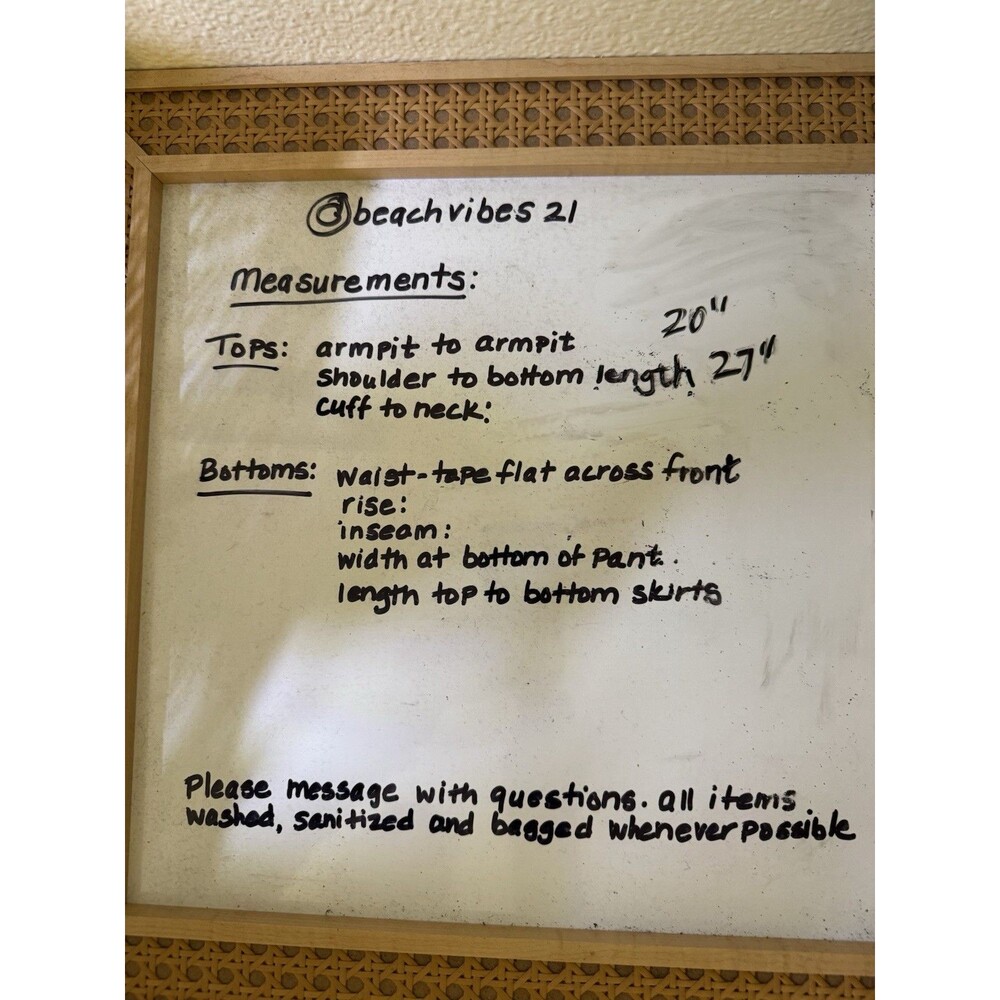 @beachvibes 21
Measurements:
Tops: armpit to armpit 20"
shoulder to bottom length 27"
cuff to neck:
Bottoms: waist-tape flat across front
rise:
inseam:
width at bottom of pant.
length top to bottom skirts
Please message with questions. all items
washed, sanitized and bagged whenever possible